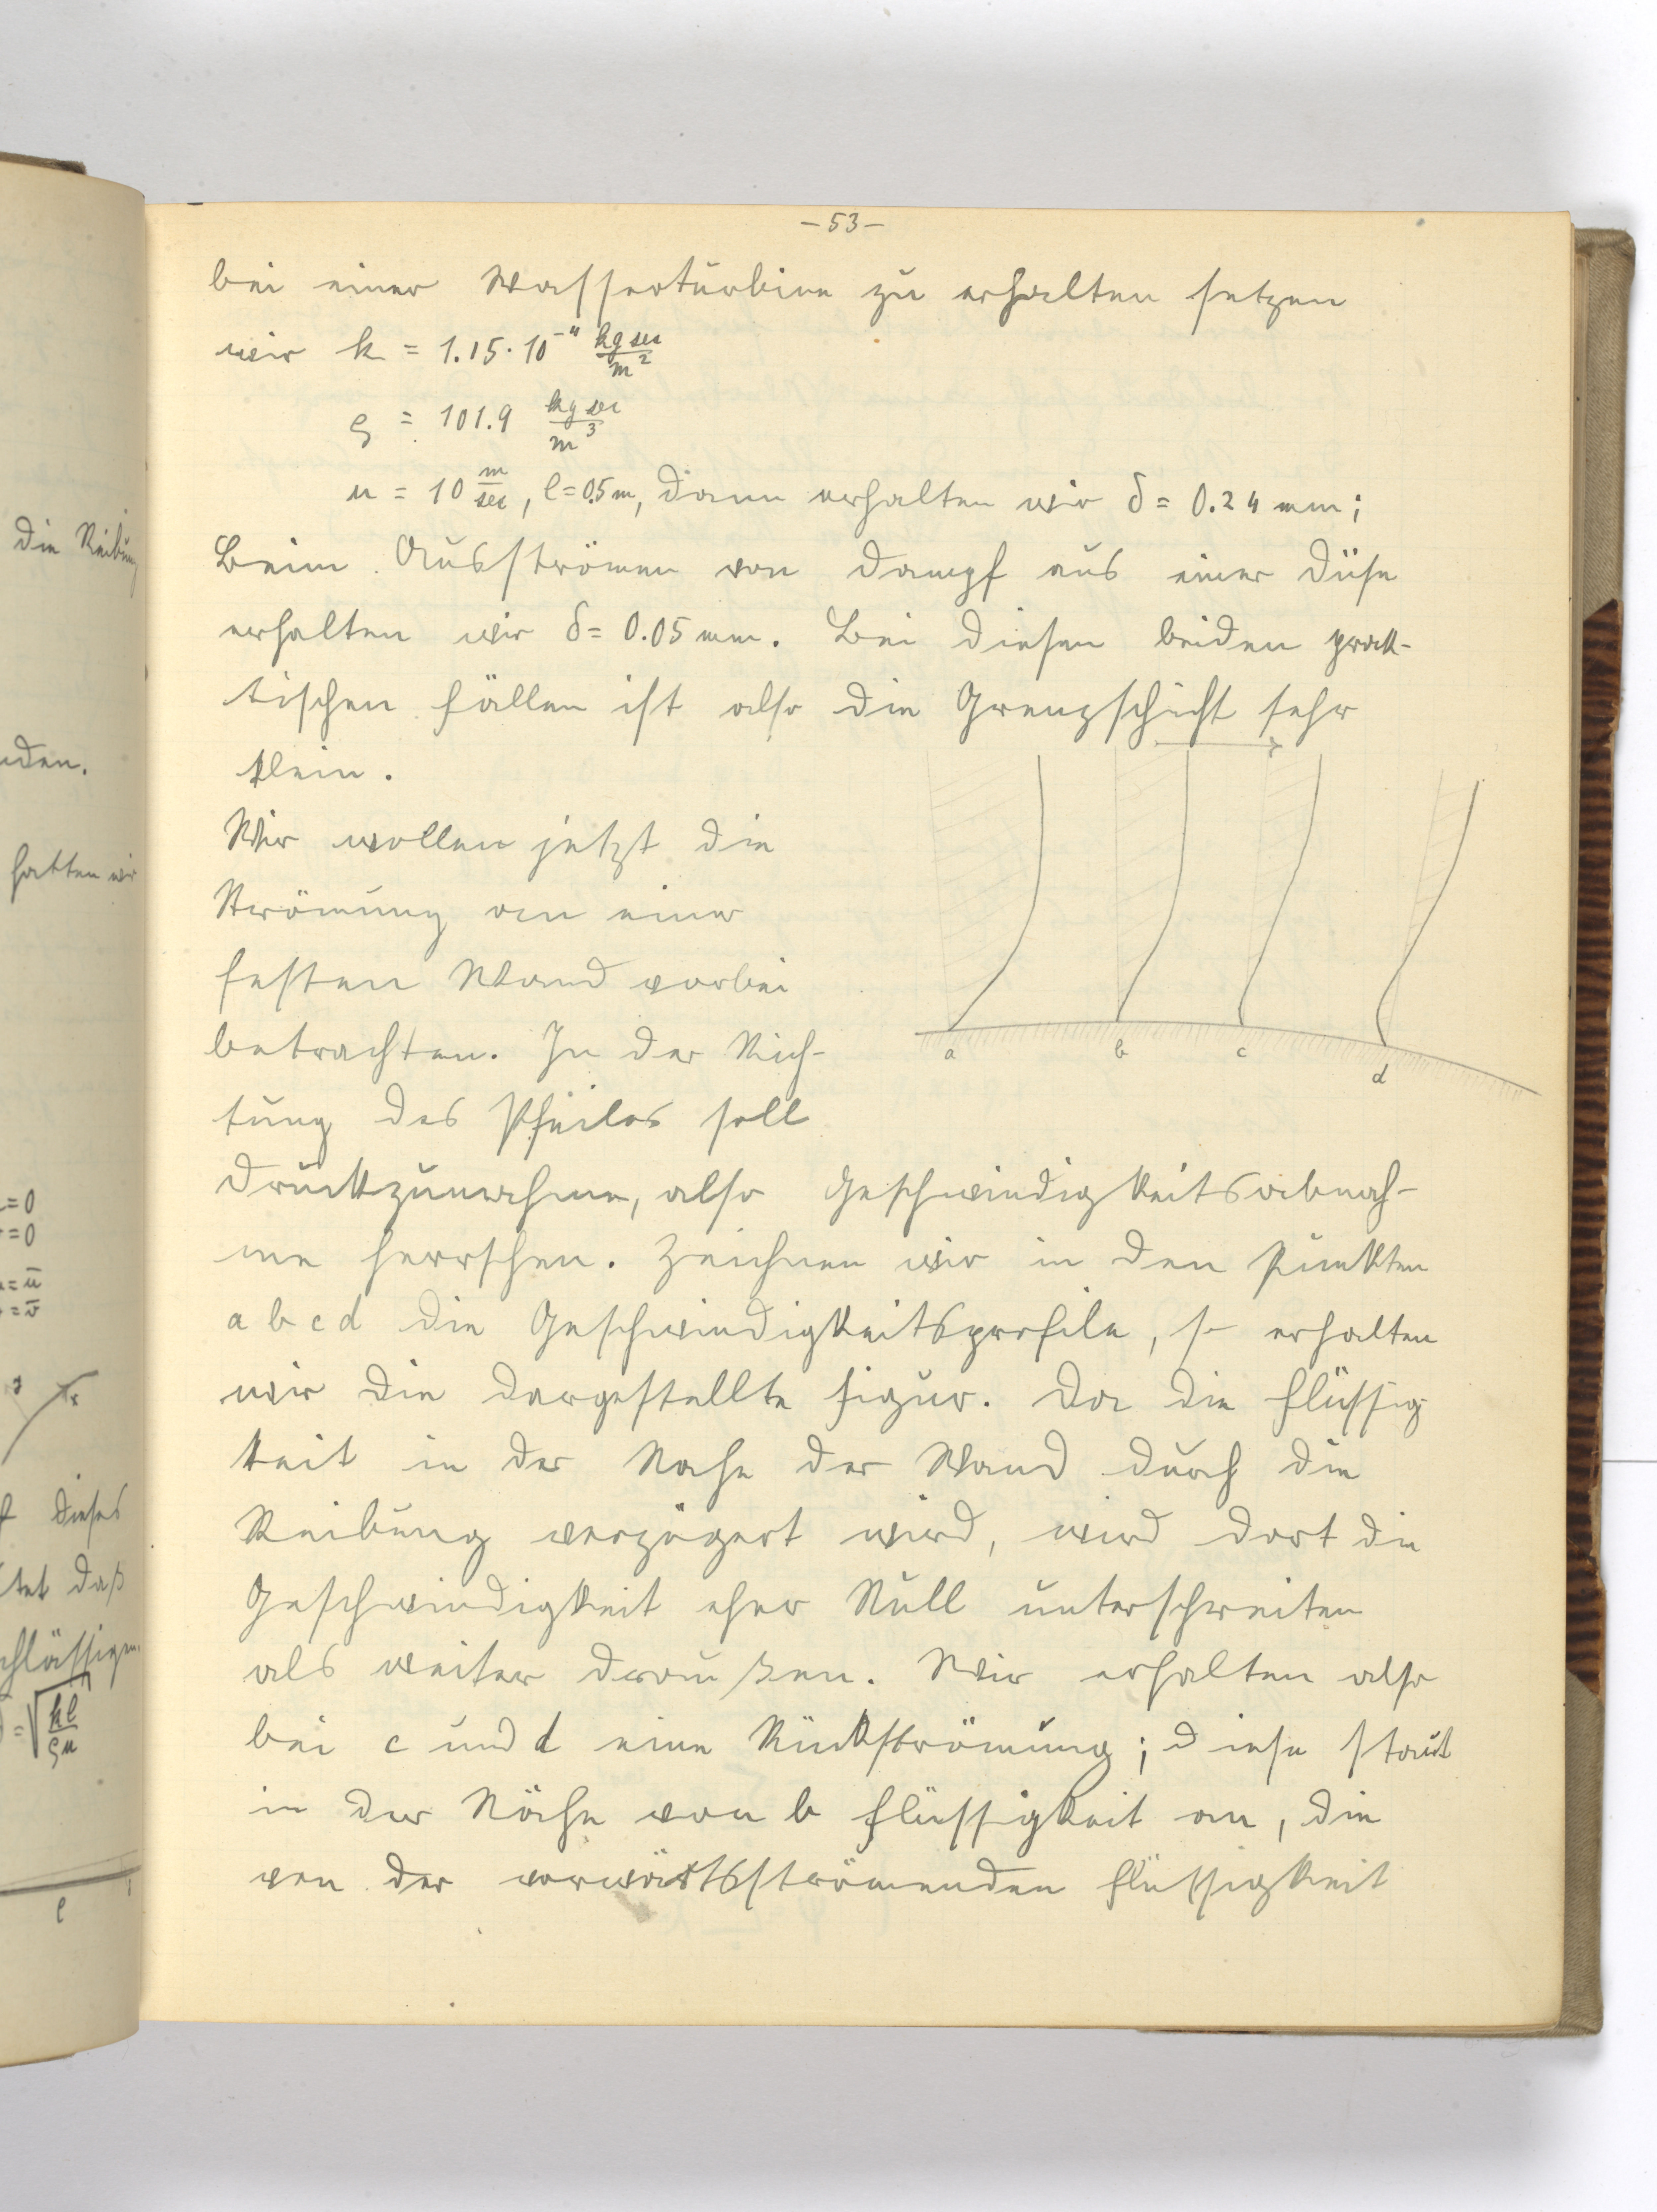 die Reibung
den.
hatten wir
=0
=0
=ū
=v̄
dieses
tet daß
chlässigen
=√(kl/ϱu)
l
-53-
bei einer Wasserturbine zu erhalten setzen
wir k = 1.15·10⁻⁴ kg sec/m²
ϱ = 101.9 kg sec/m³
u = 10 m/sec, l=0.5m, dann erhalten wir δ = 0.24 mm;
Beim Ausströmen von Dampf aus einer Düse
erhalten wir δ = 0.05 mm. Bei diesen beiden prak-
tischen Fällen ist also die Grenzschicht sehr
klein.
Wir wollen jetzt die
Strömung an einer
festen Wand vorbei
betrachten. In der Rich-
tung des Pfeiles soll
a b c d
Druckzunahme, also Geschwindigkeitsabnah-
me herrschen. Zeichnen wir in den Punkten
a b c d die Geschwindigkeitsprofile, so erhalten
wir die dargestellte Figur. Da die Flüssig
keit in der Nahe der Wand durch die
Reibung verzögert wird, wird dort die
Geschwindigkeit eher Null unterschreiten
als weiter draußen. Wir erhalten also
bei c und d eine Rückströmung; diese staut
in der Nähe von b Flüssigkeit an, die
von der vorwärtsströmenden Flüssigkeit